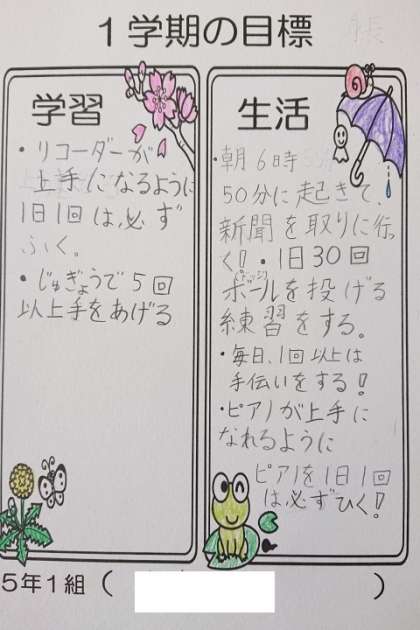 1学期の目標
学習
・リコーダーが
上手になるように
1日1回は、必ず
ふく。
・じゅぎょうで5回
以上手をあげる
生活
・朝6時
50分に起きて、
新聞を取りに行
く!・1日30回
ボールを投げる
練習をする。
・毎日、1回以上は
手伝いをする!
・ピアノが上手に
なれるように
ピアノを1日1回
は必ずひく!
5年1組( )